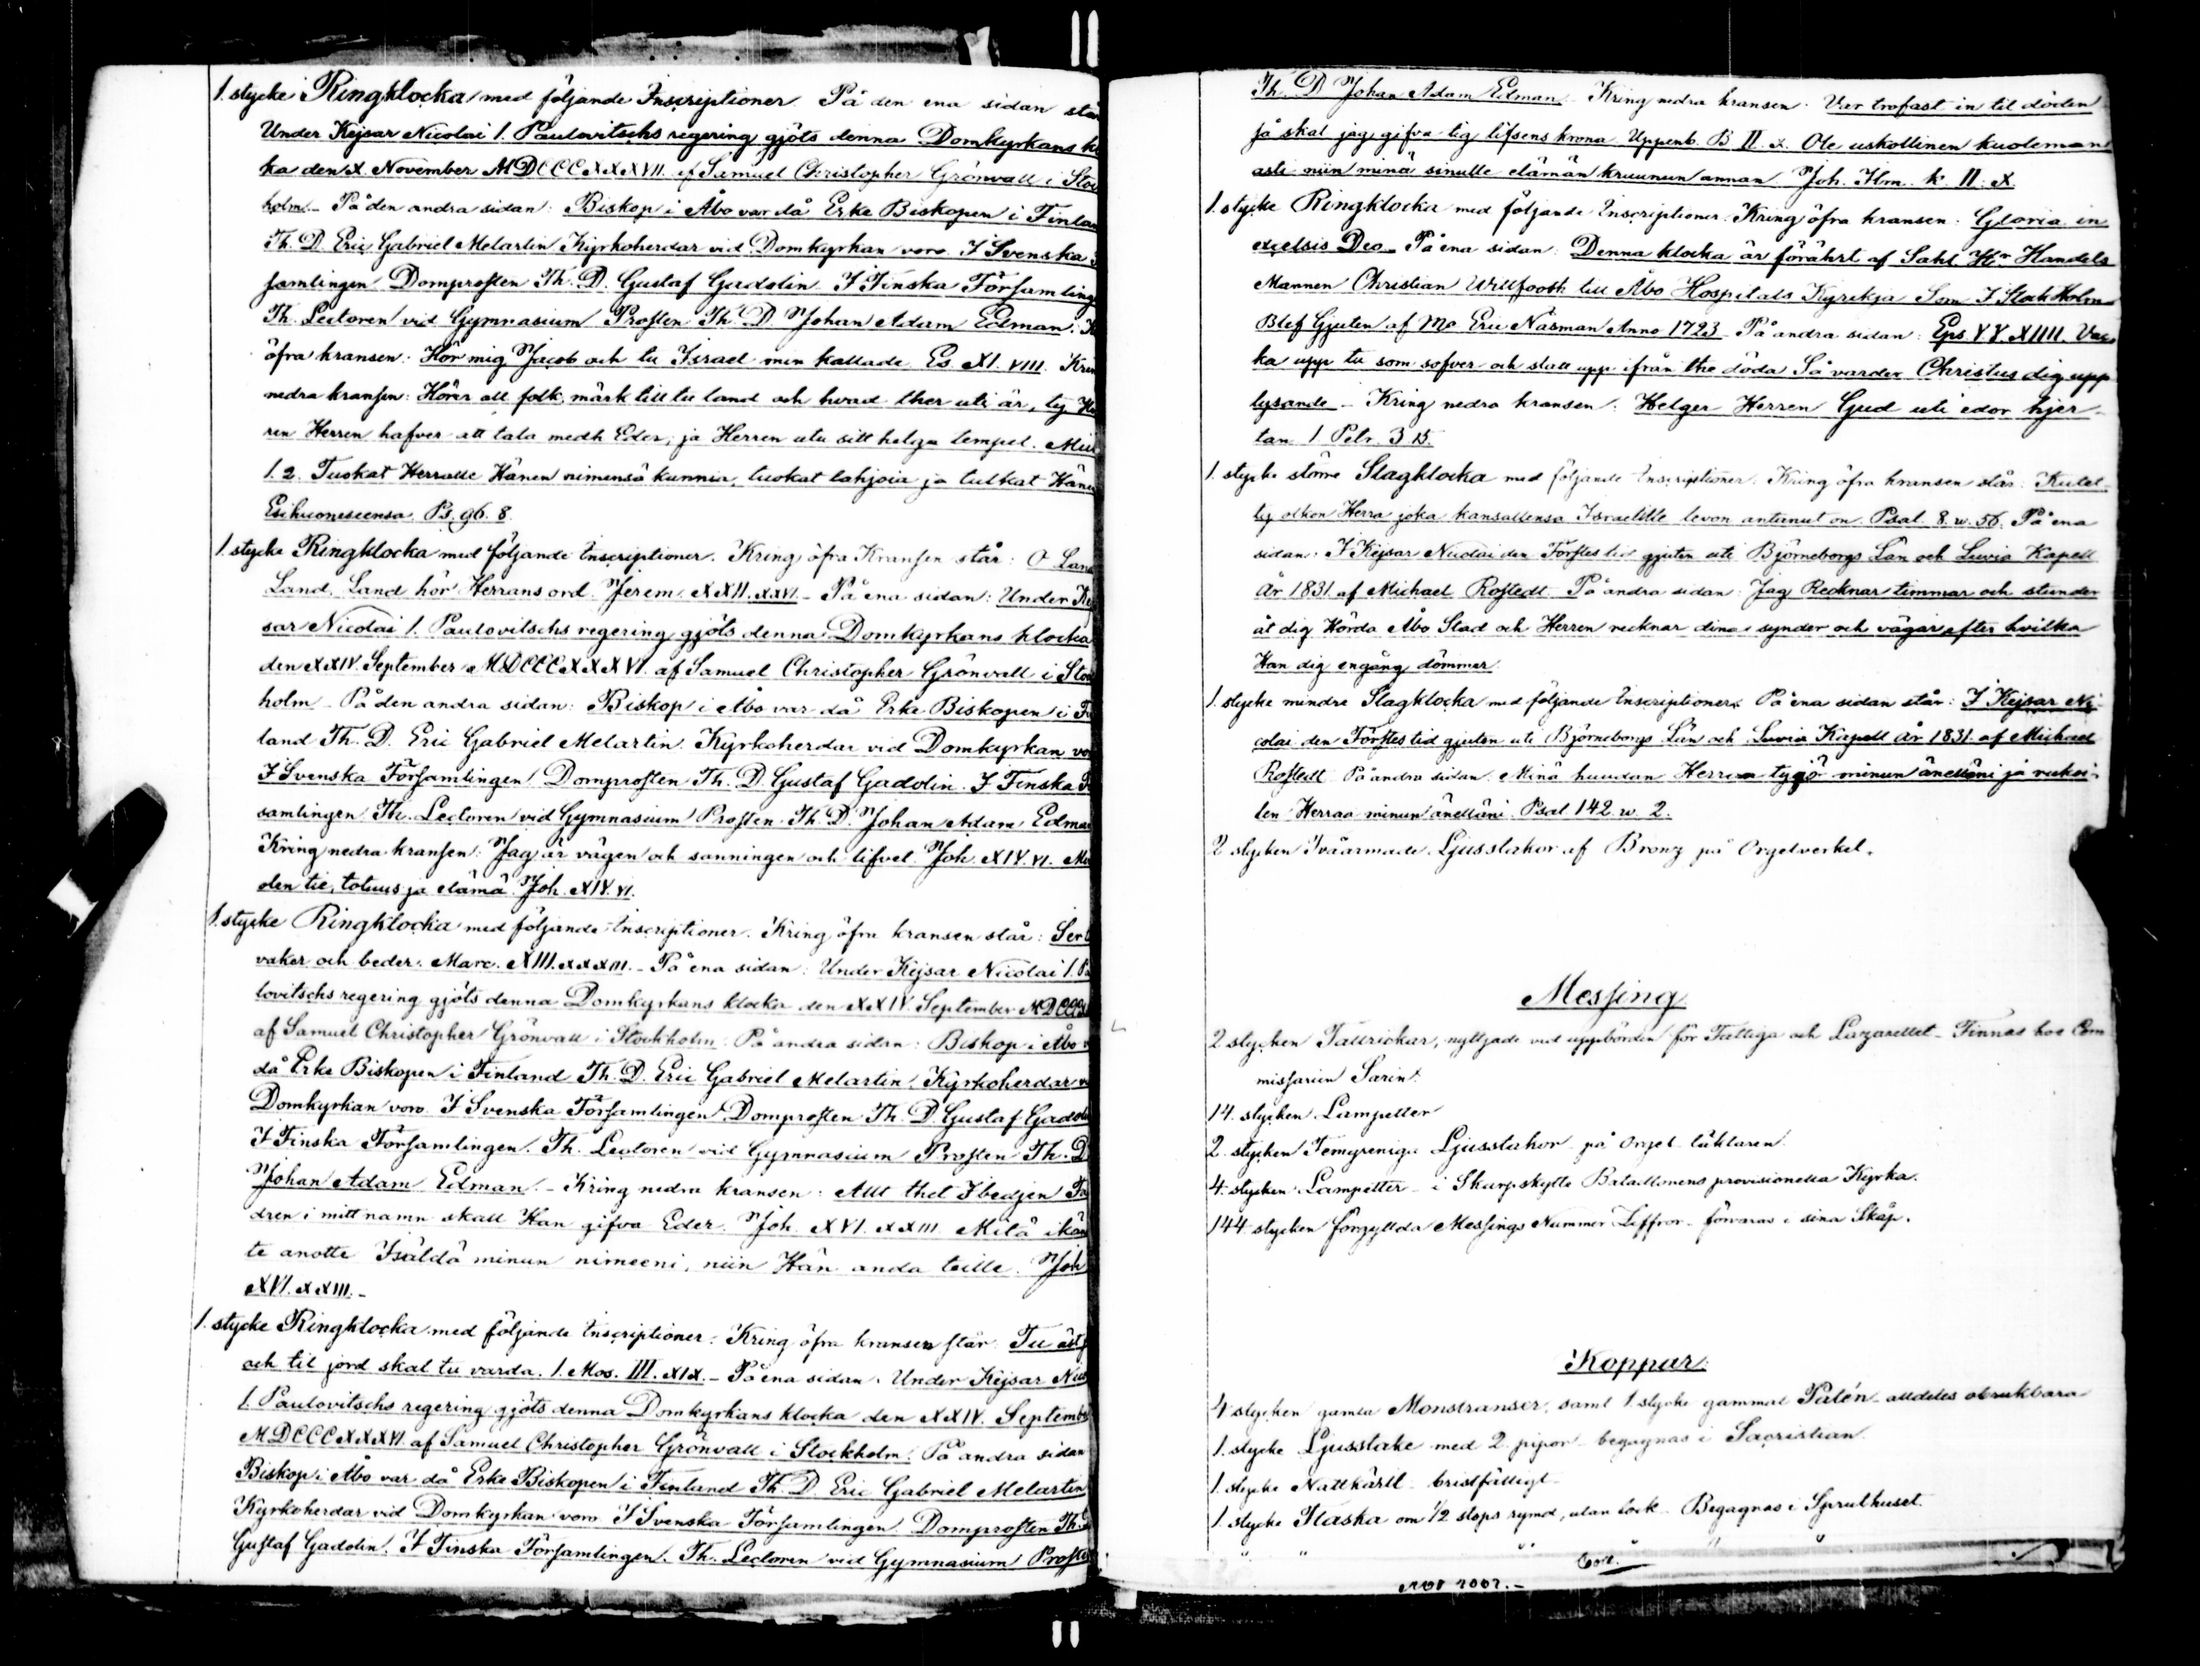 1. stycke Ringklocka med följande Inscriptioner. På den ena sidan står
Under Kejsar Nicolai 1. Paulovitschs regering gjöts denna Domkyrkans
ka den X. November MDCCCXXXVII af Samuel Christopher Grönvall i Stoc
holm. På den andra sidan: Biskop i Åbo var då Erke Biskopen i Finlan
Th. D. Eric Gabriel Melartin Kyrkoherdar vid Domkyrkan voro. I Svenska
samlingen Domprosten Th. D. Gustaf Gadolin. I Finska Församling
Th. Lectoren vid Gymnasium Prosten Th. D. Johan Adam Edman.
öfra kransen: Hör mig Jacob och tu Israel min kallade Es. XL. VIII. Krin
nedra kransen: Hörer all folk, märk till tu land och hvad ther uti är, ty
ren Herren hafver att tala medh Eder, ja Herren utu sitt heliga tempel. Mich
1. 2. Tuokat Herralle Hänen nimensä kunnia, tuokat lahjoia ja tulkat Hänen
Esihuoneseensa. Ps. 96. 8.
1. stycke Ringklocka med följande Inscriptioner. Kring öfra Kransen står: O Land
Land, Land hör Herrans ord. Jerem. XXII. XXVI. På ena sidan: Under Kej
sar Nicolai 1. Paulovitschs regering gjöts denna Domkyrkans klocka
den XXIV. September MDCCCXXXVI. af Samuel Christopher Grönvall i Stoc
holm. På den andra sidan: Biskop i Åbo var då Erke Biskopen i Fin
land Th. D. Eric Gabriel Melartin. Kyrkoherdar vid Domkyrkan vor
I Svenska Församlingen Domprosten Th. D. Gustaf Gadolin. I Finska
samlingen Th. Lectoren vid Gymnasium Prosten Th. D. Johan Adam Edman
Kring nedra kransen: Jag är vägen och sanningen och lifvet. Joh. XIV. VI.
olen tie, totuus ja elämä. Joh. XIV. VI.
1. stycke Ringklocka med följande Inscriptioner. Kring öfra kransen står: Ser
vaker och beder. Marc. XIII. XXXIII. På ena sidan: Under Kejsar Nicolai 1. Pa
lovitschs regering gjöts denna Domkyrkans klocka den XXIV September MDCCC
af Samuel Christopher Grönvall i Stockholm. På andra sidan: Biskop i Åbo v
då Erke Biskopen i Finland Th. D. Eric Gabriel Melartin. Kyrkoherdar v
Domkyrkan voro. I Svenska Församlingen Domprosten Th. D. Gustaf Gadol
I Finska Församlingen. Th. Lectoren vid Gymnasium Prosten Th. D
Johan Adam Edman. Kring nedra kransen: Allt thet I bedjen Fa
dren i mitt namn skall Han gifva Eder. Joh. XVI. XXIII. Mitä ikän
te anotte Isäldä minun nimeeni, niin Hän anda teille. Joh
XVI. XXIII.
1. stycke Ringklocka med följande Inscriptioner: Kring öfra kransen står Tu äst j
och til jord skal tu varda. 1. Mos. III. XIX. På ena sidan: Under Kejsar Nico
1. Paulovitschs regering gjöts denna Domkyrkans klocka den XXIV. September
MDCCCXXXVI af Samuel Christopher Grönvall i Stockholm. På andra sidan
Biskop i Åbo var då Erke Biskopen i Finland Th. D. Eric Gabriel Melartin
Kyrkoherdar vid Domkyrkan voro I Svenska Församlingen. Domprosten Th.
Gustaf Gadolin. I Finska Församlingen. Th. Lectoren vid Gymnasium Proste
Th. D Johan Adam Edman. Kring nedra kransen. Var trofast in til döden
så skal jag gifva tig lifsens krona Uppenb. B II. X. Ole uskollinen kuoleman
asti niin minä sinulle elämän kruunun annan Joh. Ilm. k. II. X.
1. stycke Ringklocka med följande Inscriptioner. Kring öfra kransen: Gloria in
excelsis Deo. På ena sidan: Denna klocka är förährt af Sahl. Hr Handels
Mannen Christian Willfoott till Åbo Hospitals Kyrckja Som I Stock Holm
Blef Gjuten af Mr Eric Näsman Anno 1723. På andra sidan: Eps V. V. XIIII. Vac
ka upp tu som sofver och statt upp ifrån the döda Så varder Christus dig upp
lysande. Kring nedra kransen: Helger Herren Gud uti edor hjer
tan 1 Petr. 3. 15.
1. stycke större Slagklocka med följande Inscriptioner. Kring öfra kransen står: Kiitet
ty olkon Herra joka kansallensa Israelille levon antanut on. Psal. 8. w. 56. På ena
sidan: I Kejsar Nicolai den Förstes tid gjuten uti Björneborgs Län och Luvia Kapell
År 1831. af Michael Rostedt. På andra sidan: Jag Recknar timmar och stunder
åt dig Hörda Åbo Stad och Herren recknar dina synder och vägar efter hvilka
Han dig engång dömmer.
1. stycke mindre Slagklocka med följande Inscriptioner. På ena sidan står: I Kejsar Ni
colai den Förstes tid gjuten uti Björneborgs Län och Luvia Kapell År 1831. af Michael
Rostedt På andra sidan. Minä huudan Herran tygö minun änelläni ja rukoi
len Herraa minun änelläni. Psal 142 w. 2.
2 stycken Tvåarmade Ljusstakar af Bronz på Orgelverket.
Messing
2 stycken Tallrickar, nyttjade vid uppbörden för Fattiga och Lazarettet. Finnas hos Com
missarien Sarin.
14. stycken Lampetter
2. stycken Femgreniga Ljusstakor på Orgel läktaren.
4. stycken Lampetter i Skarpskytte Bataillonens provisionella Kyrka.
144 stycken förgyllda Messings Nummer Ziffror förvaras i sina Skåp.
Koppar:
4 stycken gamla Monstranser, samt 1 stycke gammal Patén alldeles obrukbara
1. stycke Ljusstake med 2. pipor begagnas i Sacristian.
1. stycke Nattkärll bristfälligt
1. stycke Flaska om 1/2 stops rymd, utan lock. Begagnas i Spruthuset.